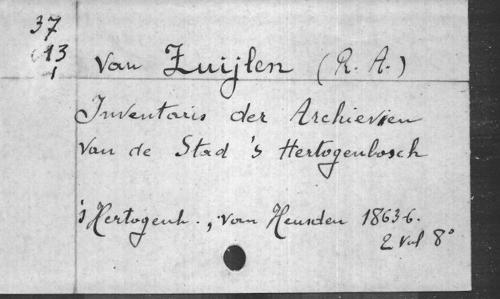 37
613
1
van Zuijlen (R. A.)
Inventaris der Archieven
van de Stad 's Hertogenbosch
's Hertogenb., van Heusden 1863-6.
2 vol 8°